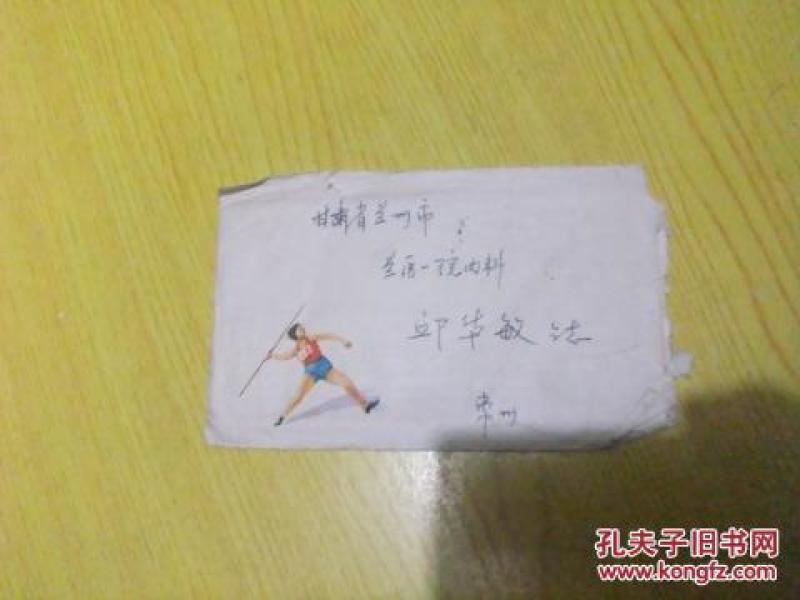 甘肃省兰州市
兰医一院内科
邱华敏 同志
常州
孔夫子旧书网
www.kongfz.com